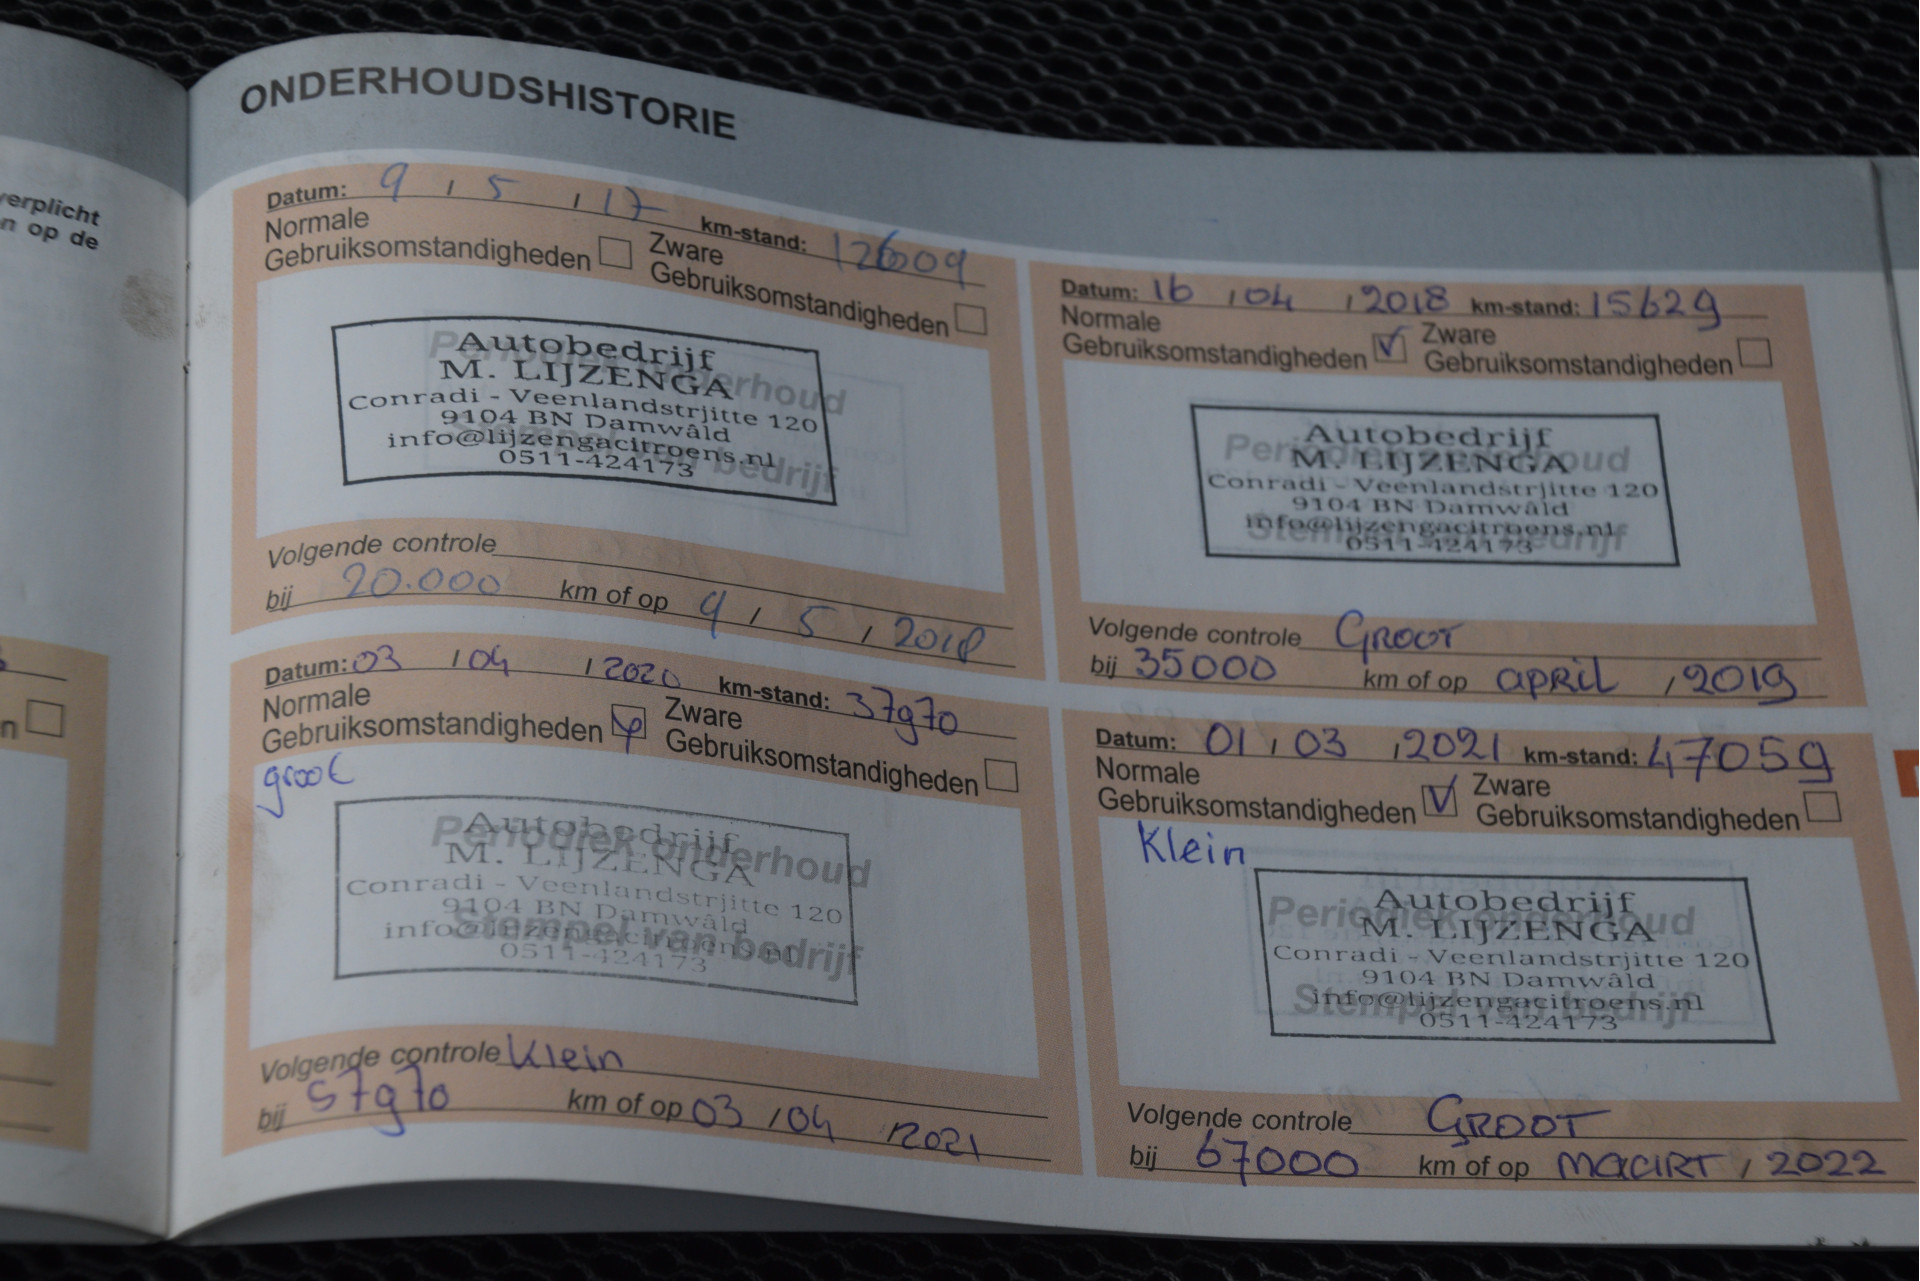 ONDERHOUDSHISTORIE
verplicht
n op de
n
Datum: 9 / 5 / 17 km-stand: 12609
Normale
Gebruiksomstandigheden
Zware
Gebruiksomstandigheden
Periodiek onderhoud
Stempel van bedrijf
Autobedrijf
M. LIJZENGA
Conradi - Veenlandstrjitte 120
9104 BN Damwâld
info@lijzengacitroens.nl
0511-424173
Volgende controle
bij 20.000 km of op 9 / 5 / 2018
Datum: 16 / 04 / 2018 km-stand: 15629
Normale
Gebruiksomstandigheden
Zware
Gebruiksomstandigheden
Periodiek onderhoud
Stempel van bedrijf
Autobedrijf
M. LIJZENGA
Conradi - Veenlandstrjitte 120
9104 BN Damwâld
info@lijzengacitroens.nl
0511-424173
Volgende controle GROOT
bij 35000 km of op april / 2019
Datum: 03 / 04 / 2020 km-stand: 37970
Normale
Gebruiksomstandigheden
Zware
Gebruiksomstandigheden
groot
Periodiek onderhoud
Stempel van bedrijf
Autobedrijf
M. LIJZENGA
Conradi - Veenlandstrjitte 120
9104 BN Damwâld
info@lijzengacitroens.nl
0511-424173
Volgende controle Klein
bij 57970 km of op 03 / 04 / 2021
Datum: 01 / 03 / 2021 km-stand: 47059
Normale
Gebruiksomstandigheden
Zware
Gebruiksomstandigheden
Klein
Periodiek onderhoud
Stempel van bedrijf
Autobedrijf
M. LIJZENGA
Conradi - Veenlandstrjitte 120
9104 BN Damwâld
info@lijzengacitroens.nl
0511-424173
Volgende controle GROOT
bij 67000 km of op maart / 2022